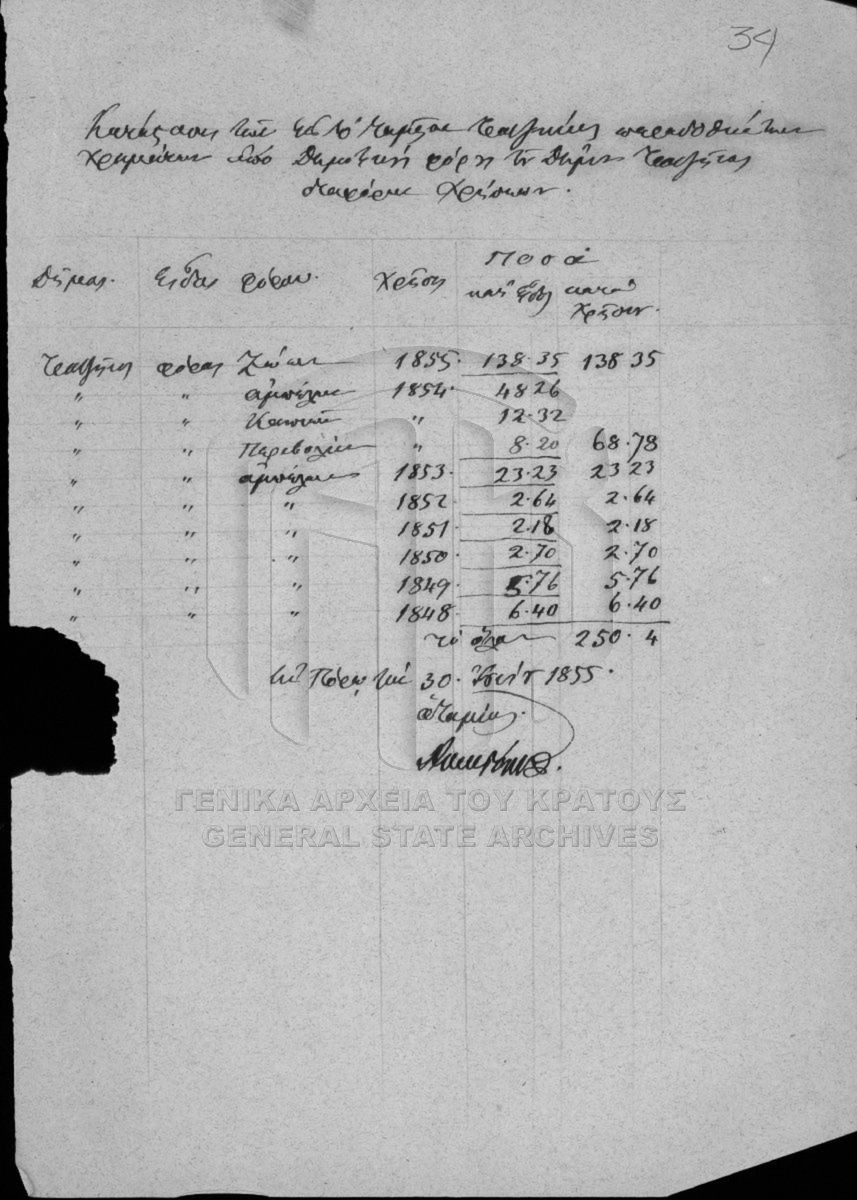 34
Κατάστασις τῶν εἰς τὸ Ταμεῖον Τροιζηνίας παραδοθέντων
χρημάτων ἀπὸ δημοτικοὺς φόρους τοῦ Δήμου Τροιζῆνος
διαφόρων χρήσεων.
Π ο σ ὰ
Δῆμος. Εἶδος φόρου. Χρῆσις κατ' εἶδος κατὰ
χρῆσιν.
Τροιζῆνος φόρος Ζώων 1855. 138.35 138 35
" " ἀμπέλων 1854. 48 26
" " Καπνοῦ " 12.32
" " Περιβολίων " 8.20 68.78
" " ἀμπέλων 1853. 23.23 23 23
" " " 1852. 2.64 2.64
" " " 1851. 2.18 2.18
" " " 1850. 2.70 2.70
" " " 1849. 5.76 5.76
" " " 1848. 6.40 6.40
τὸ ὅλον 250.4
Ἐν Πόρῳ τῇ 30. 1855.
ὁ Ταμίας.
ΓΕΝΙΚΑ ΑΡΧΕΙΑ ΤΟΥ ΚΡΑΤΟΥΣ
GENERAL STATE ARCHIVES